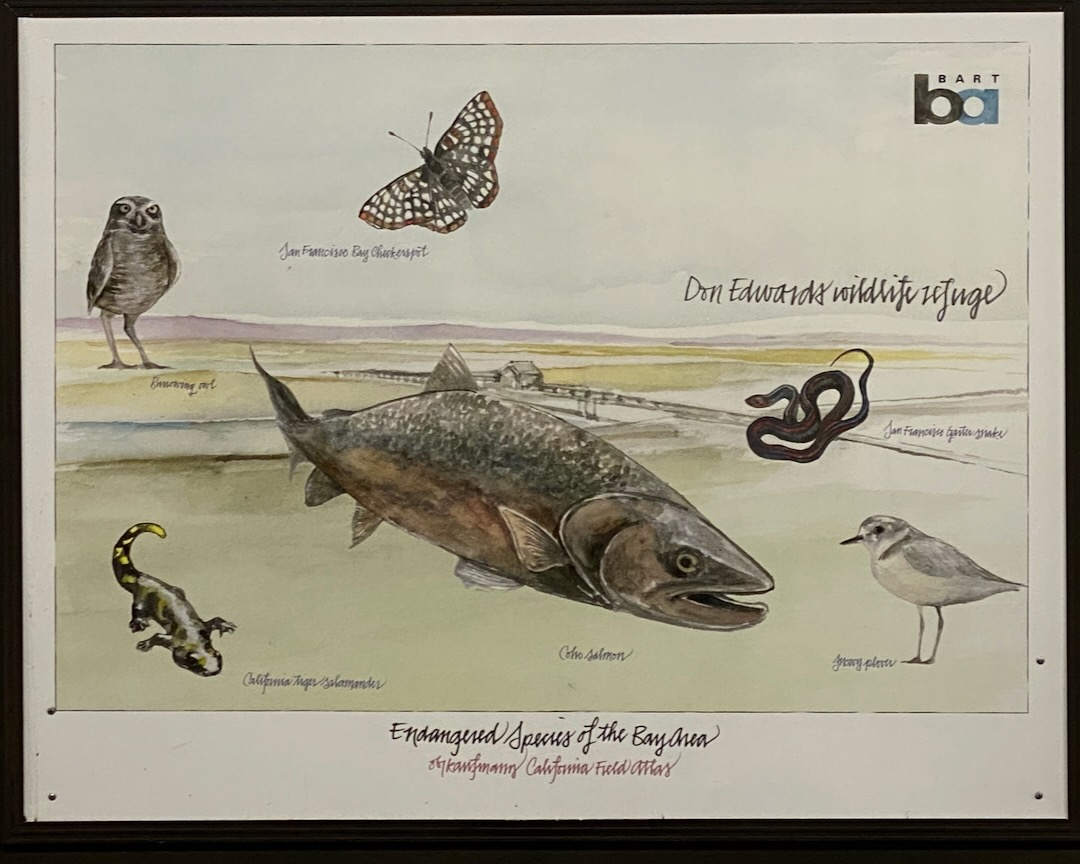 BART
ba
San Francisco Bay Checkerspot
Don Edwards wildlife refuge
Burrowing owl
San Francisco Garter snake
Coho Salmon
Snowy plover
California tiger salamander
Endangered Species of the Bay Area
Obi Kaufmann California Field Atlas